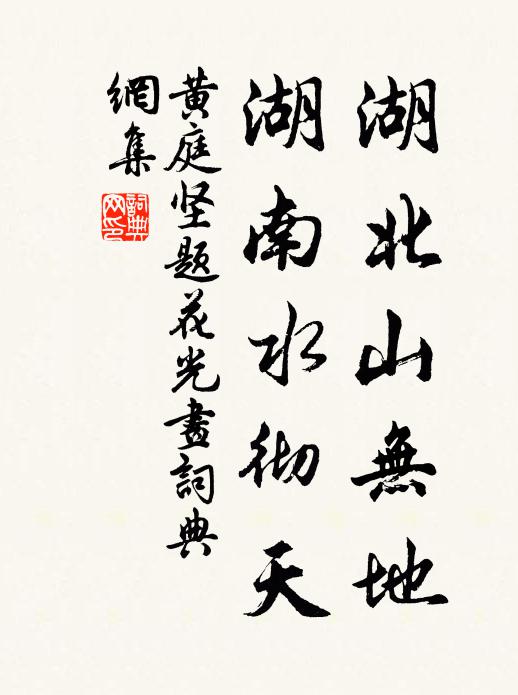 湖北山無地
湖南水彻天
黄庭坚题花光畫詞典
網集
詞典
网印